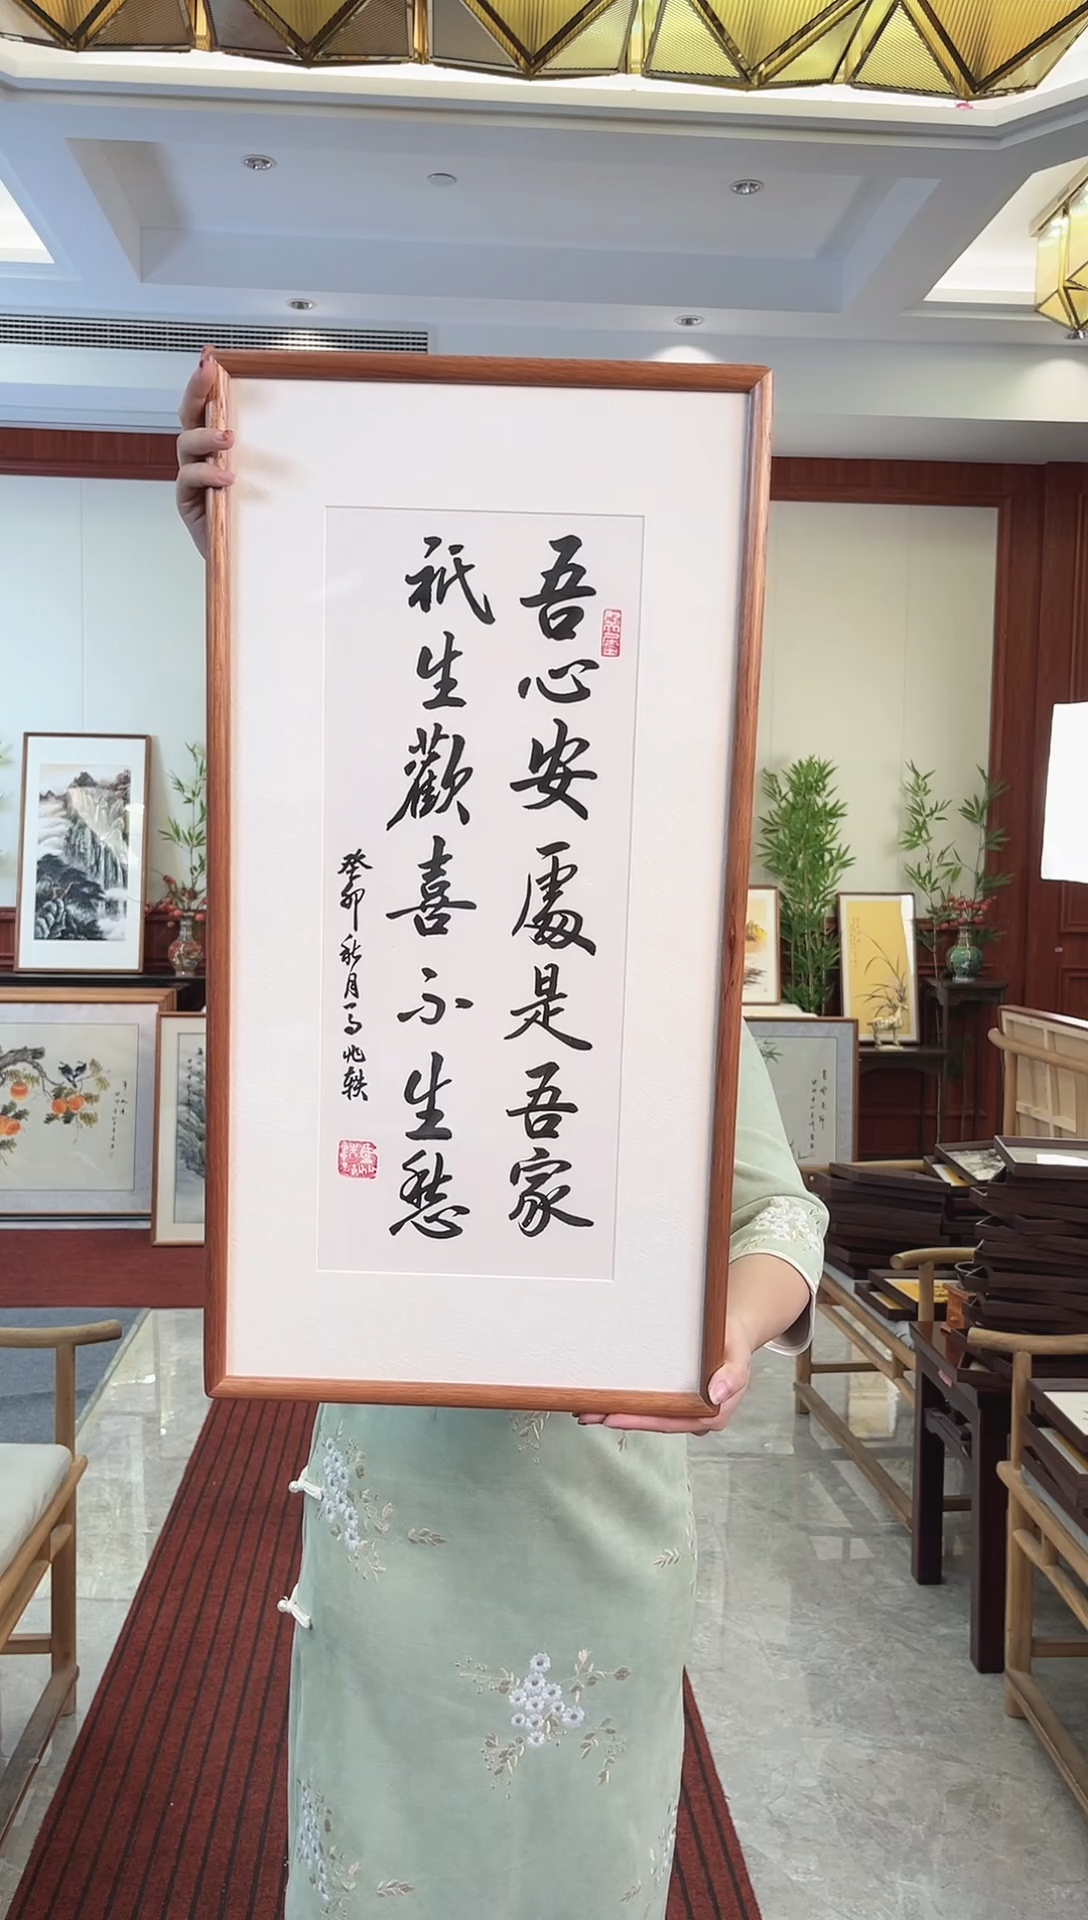 吾心安處是吾家
祇生歡喜不生愁
癸卯秋月馬兆軼